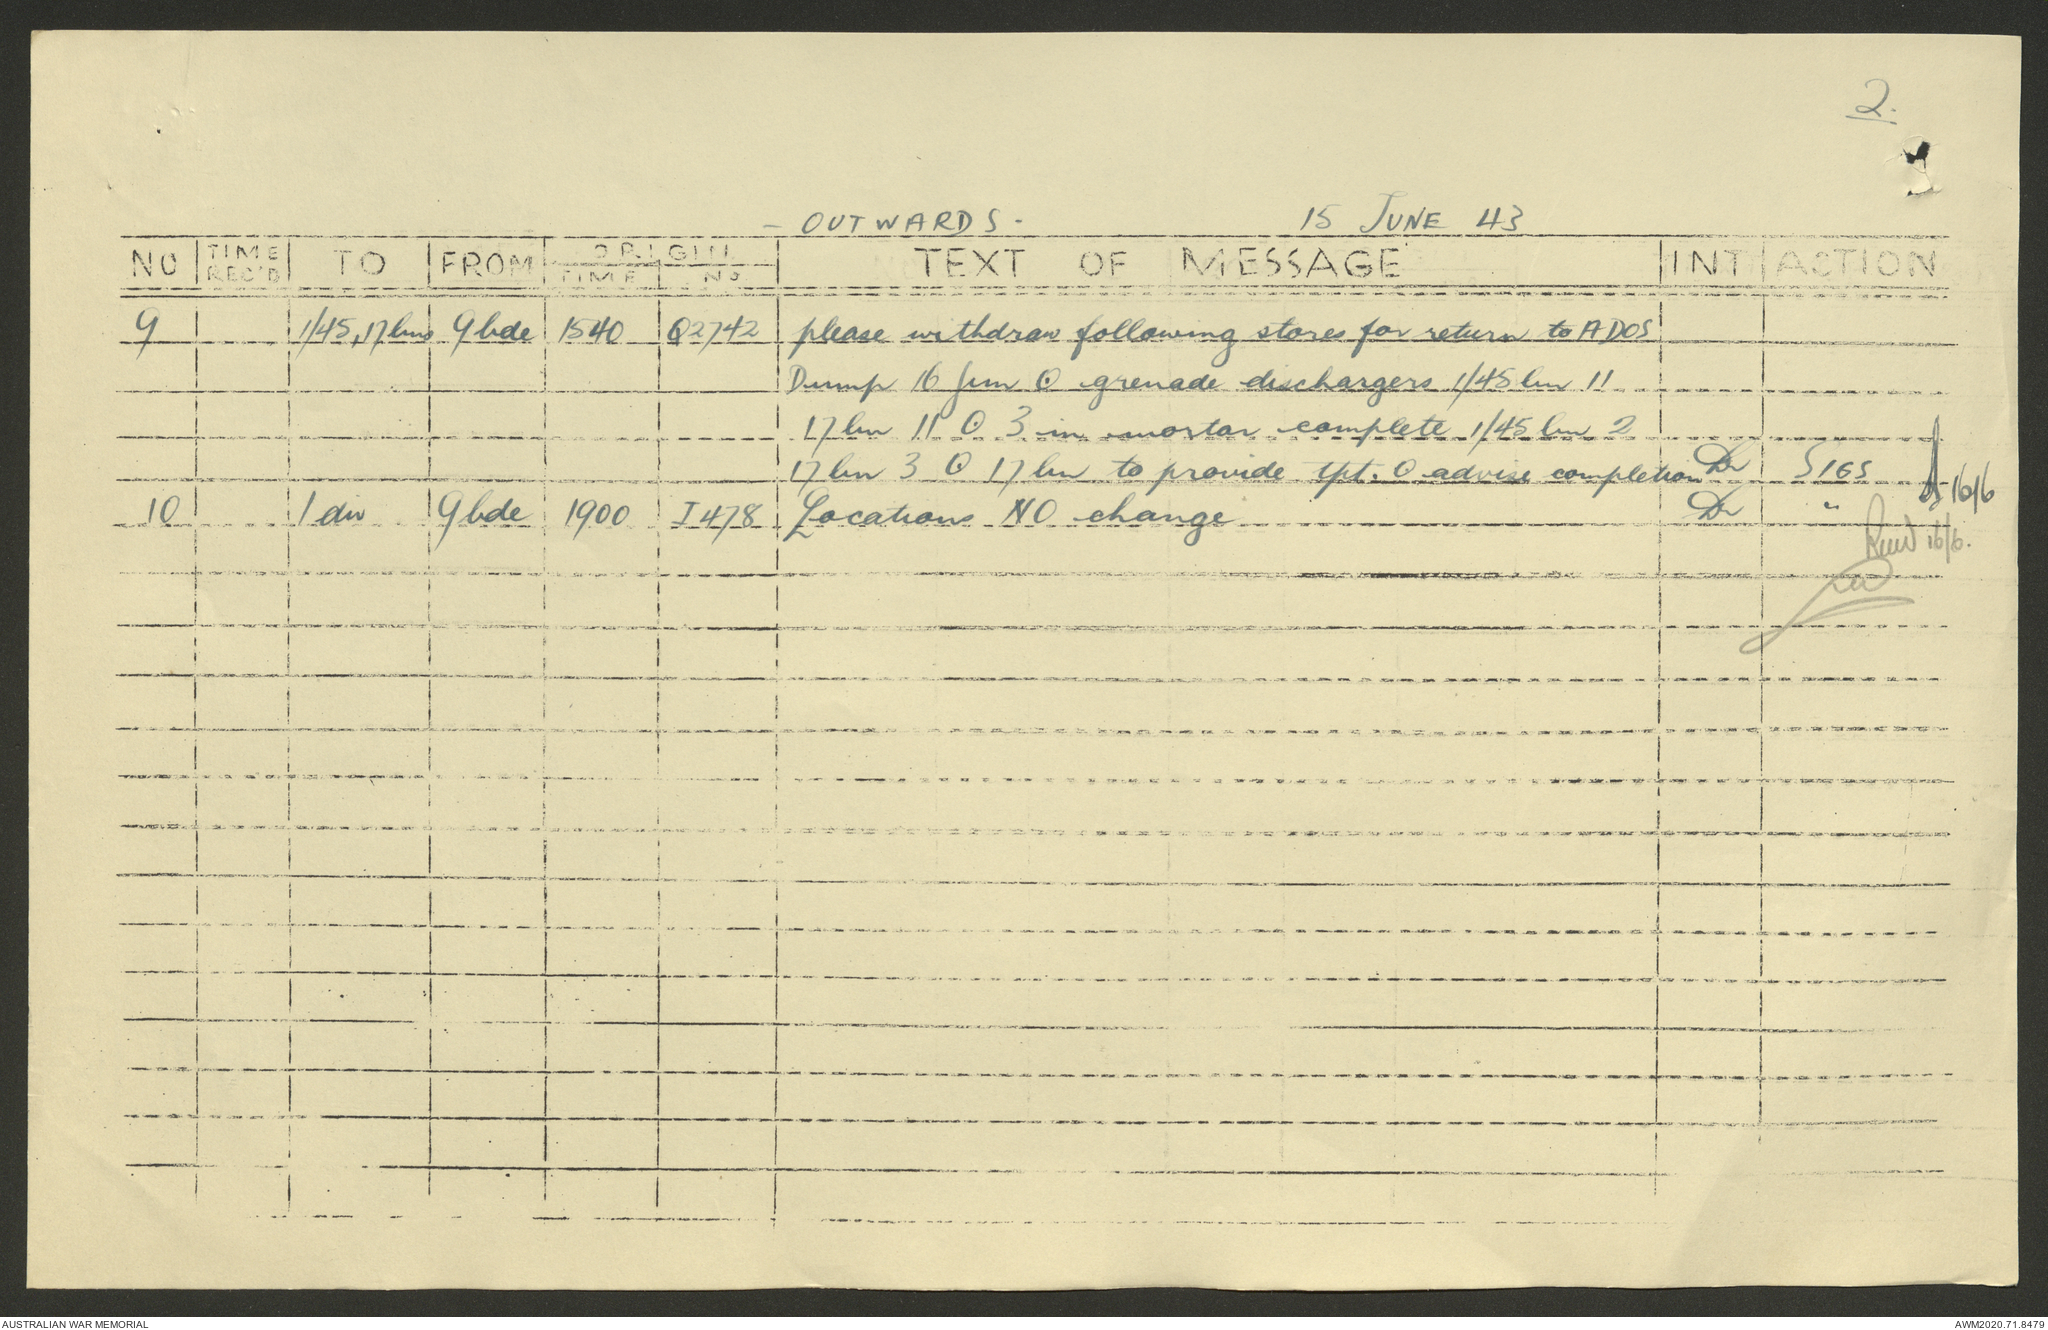 2.
- OUTWARDS - 15 JUNE 43
NO TIME REC'D TO FROM ORIGIN TIME NO TEXT OF MESSAGE INT ACTION
9 1/45, 17 bns 9 bde 1540 Q2742 please withdraw following stores for return to ADOS
Dump 16 Jun O grenade dischargers 1/45 bn 11
17 bn 11 O 3 in mortar complete 1/45 bn 2
17 bn 3 O 17 bn to provide tpt. O advise completion SIGS
10 1 div 9 bde 1900 I478 Locations NO change "
16/6
16/6.
AUSTRALIAN WAR MEMORIAL AWM2020.71.8479